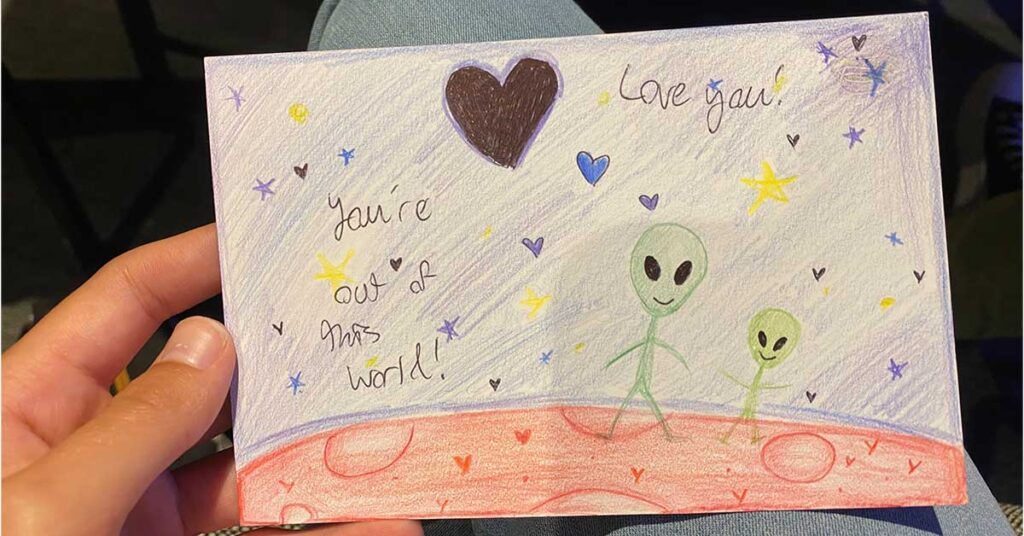 Love you!
you're
out of
this
world!